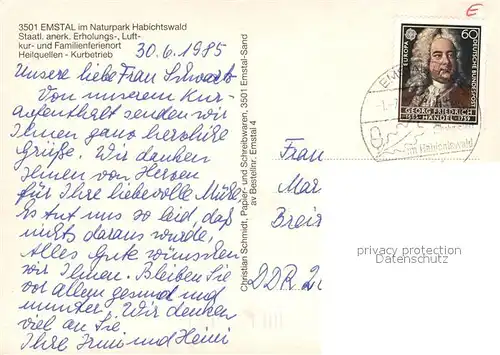 3501 EMSTAL im Naturpark Habichtswald
Staatl. anerk. Erholungs-, Luft-
kur- und Familienferienort
Heilquellen - Kurbetrieb
30.6.1985
Unsere liebe Frau Schwarb
Von unserem Kur-
aufenthalt senden wir
Ihnen ganz herzliche
Grüße. Wir danken
Ihnen von Herzen
für Ihre liebevolle Mühe
Es tut uns so leid, daß
nichts daraus wurde,
Alles Gute wünschen
wir Ihnen. Bleiben Sie
vor allem gesund und
munter. Wir denken
viel an Sie
Ihre Irmi und Heini
Christian Schmidt, Papier- und Schreibwaren, 3501 Emstal-Sand
av Bestellnr. Emstal 4
E
EUROPA
60
DEUTSCHE BUNDESPOST
GEORG FRIEDRICH
1685 HÄNDEL 1759
EMS
im Habichtswald
Frau
Mar
Breit
DDR 20
privacy protection
Datenschutz